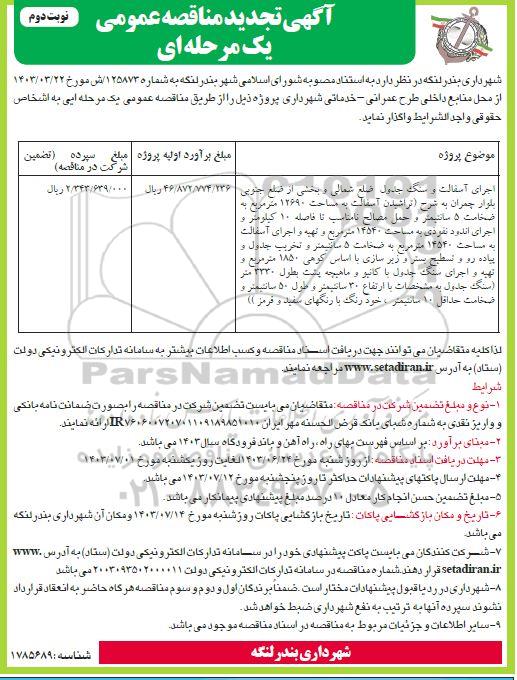 آگهی تجدید مناقصه عمومی
یک مرحله‌ای
نوبت دوم
شهرداری بندر لنگه در نظر دارد به استناد مصوبه شورای اسلامی شهر بندر لنگه به شماره ۱۲۵۸۷۳/ش مورخ ۱۴۰۳/۰۳/۲۲
از محل منابع داخلی طرح عمرانی – خدماتی شهرداری پروژه ذیل را از طریق مناقصه عمومی یک مرحله ایی به اشخاص
حقوقی واجد الشرایط واگذار نماید.
موضوع پروژه
مبلغ برآورد اولیه پروژه
مبلغ سپرده (تضمین
شرکت در مناقصه)
اجرای آسفالت و سنگ جدول ضلع شمالی و بخشی از ضلع جنوبی
بلوار چمران به شرح (تراشیدن آسفالت به مساحت ۱۲۶۹۰ مترمربع به
ضخامت ۵ سانتیمتر و حمل مصالح نامناسب تا فاصله ۱۰ کیلومتر و
اجرای اندود نفوذی به مساحت ۱۴۵۴۰ مترمربع و تهیه و اجرای آسفالت
به مساحت ۱۴۵۴۰ مترمربع به ضخامت ۵ سانتیمتر و تخریب جدول و
پیاده رو و تسطیح بستر و زیر سازی با اساس کوهی ۱۸۵۰ مترمربع و
تهیه و اجرای سنگ جدول با کانیو و ماهیچه پشت بطول ۳۳۳۰ متر
(سنگ جدول به مشخصات با ارتفاع ۳۰ سانتیمتر و طول ۵۰ سانتیمتر و
ضخامت حداقل ۱۰ سانتیمتر ، خود رنگ با رنگهای سفید و قرمز ))
۴۶/۸۷۲/۷۷۴/۲۳۶ ریال
۲/۳۴۳/۶۳۹/۰۰۰ ریال
لذا کلیه متقاضیان می توانند جهت دریافت اسناد مناقصه و کسب اطلاعات بیشتر به سامانه تدارکات الکترونیکی دولت
(ستاد) به آدرس www.setadiran.ir مراجعه نمایند.
شرایط
۱-نوع و مبلغ تضمین شرکت در مناقصه: متقاضیان می بایست تضمین شرکت در مناقصه را بصورت ضمانت نامه بانکی
و واریز نقدی به شماره شبای بانک قرض الحسنه مهر ایران IR۷۶۰۶۰۰۷۲۰۷۰۱۱۰۹۱۸۹۸۵۱۰۱۱ ارائه نمایند.
۲-مبنای برآورد: بر اساس فهرست بهای راه ، راه آهن و باند فرودگاه سال ۱۴۰۳ می باشد.
۳-مهلت دریافت اسناد مناقصه: از روز شنبه مورخ ۱۴۰۳/۰۶/۲۴ لغایت روز یکشنبه مورخ ۱۴۰۳/۰۷/۰۱
۴-مهلت ارسال پاکتهای پیشنهادات حداکثر تا روز پنجشنبه مورخ ۱۴۰۳/۰۷/۱۲ می باشد.
۵-مبلغ تضمین حسن انجام کار معادل ۱۰ درصد مبلغ پیشنهادی پیمانکار می باشد.
۶-تاریخ و مکان بازگشایی پاکات: تاریخ بازگشایی پاکات روز شنبه مورخ ۱۴۰۳/۰۷/۱۴ و مکان آن شهرداری بندر لنگه
می باشد.
۷-شرکت کنندگان می بایست پاکت پیشنهادی خود را در سامانه تدارکات الکترونیکی دولت (ستاد) به آدرس www.
setadiran.ir قرار دهند.شماره مناقصه در سامانه تدارکات الکترونیکی دولت ۲۰۰۳۰۹۳۵۰۲۰۰۰۰۱۱ می باشد
۸-شهرداری در رد یا قبول پیشنهادات مختار است . ضمنا برندگان اول و دوم و سوم مناقصه هر گاه حاضر به انعقاد قرارداد
نشوند سپرده آنها به ترتیب به نفع شهرداری ضبط خواهد شد.
۹-سایر اطلاعات و جزئیات مربوط به مناقصه در اسناد مناقصه موجود می باشد.
شهرداری بندر لنگه
شناسه : ۱۷۸۵۶۸۹
ParsNamadData